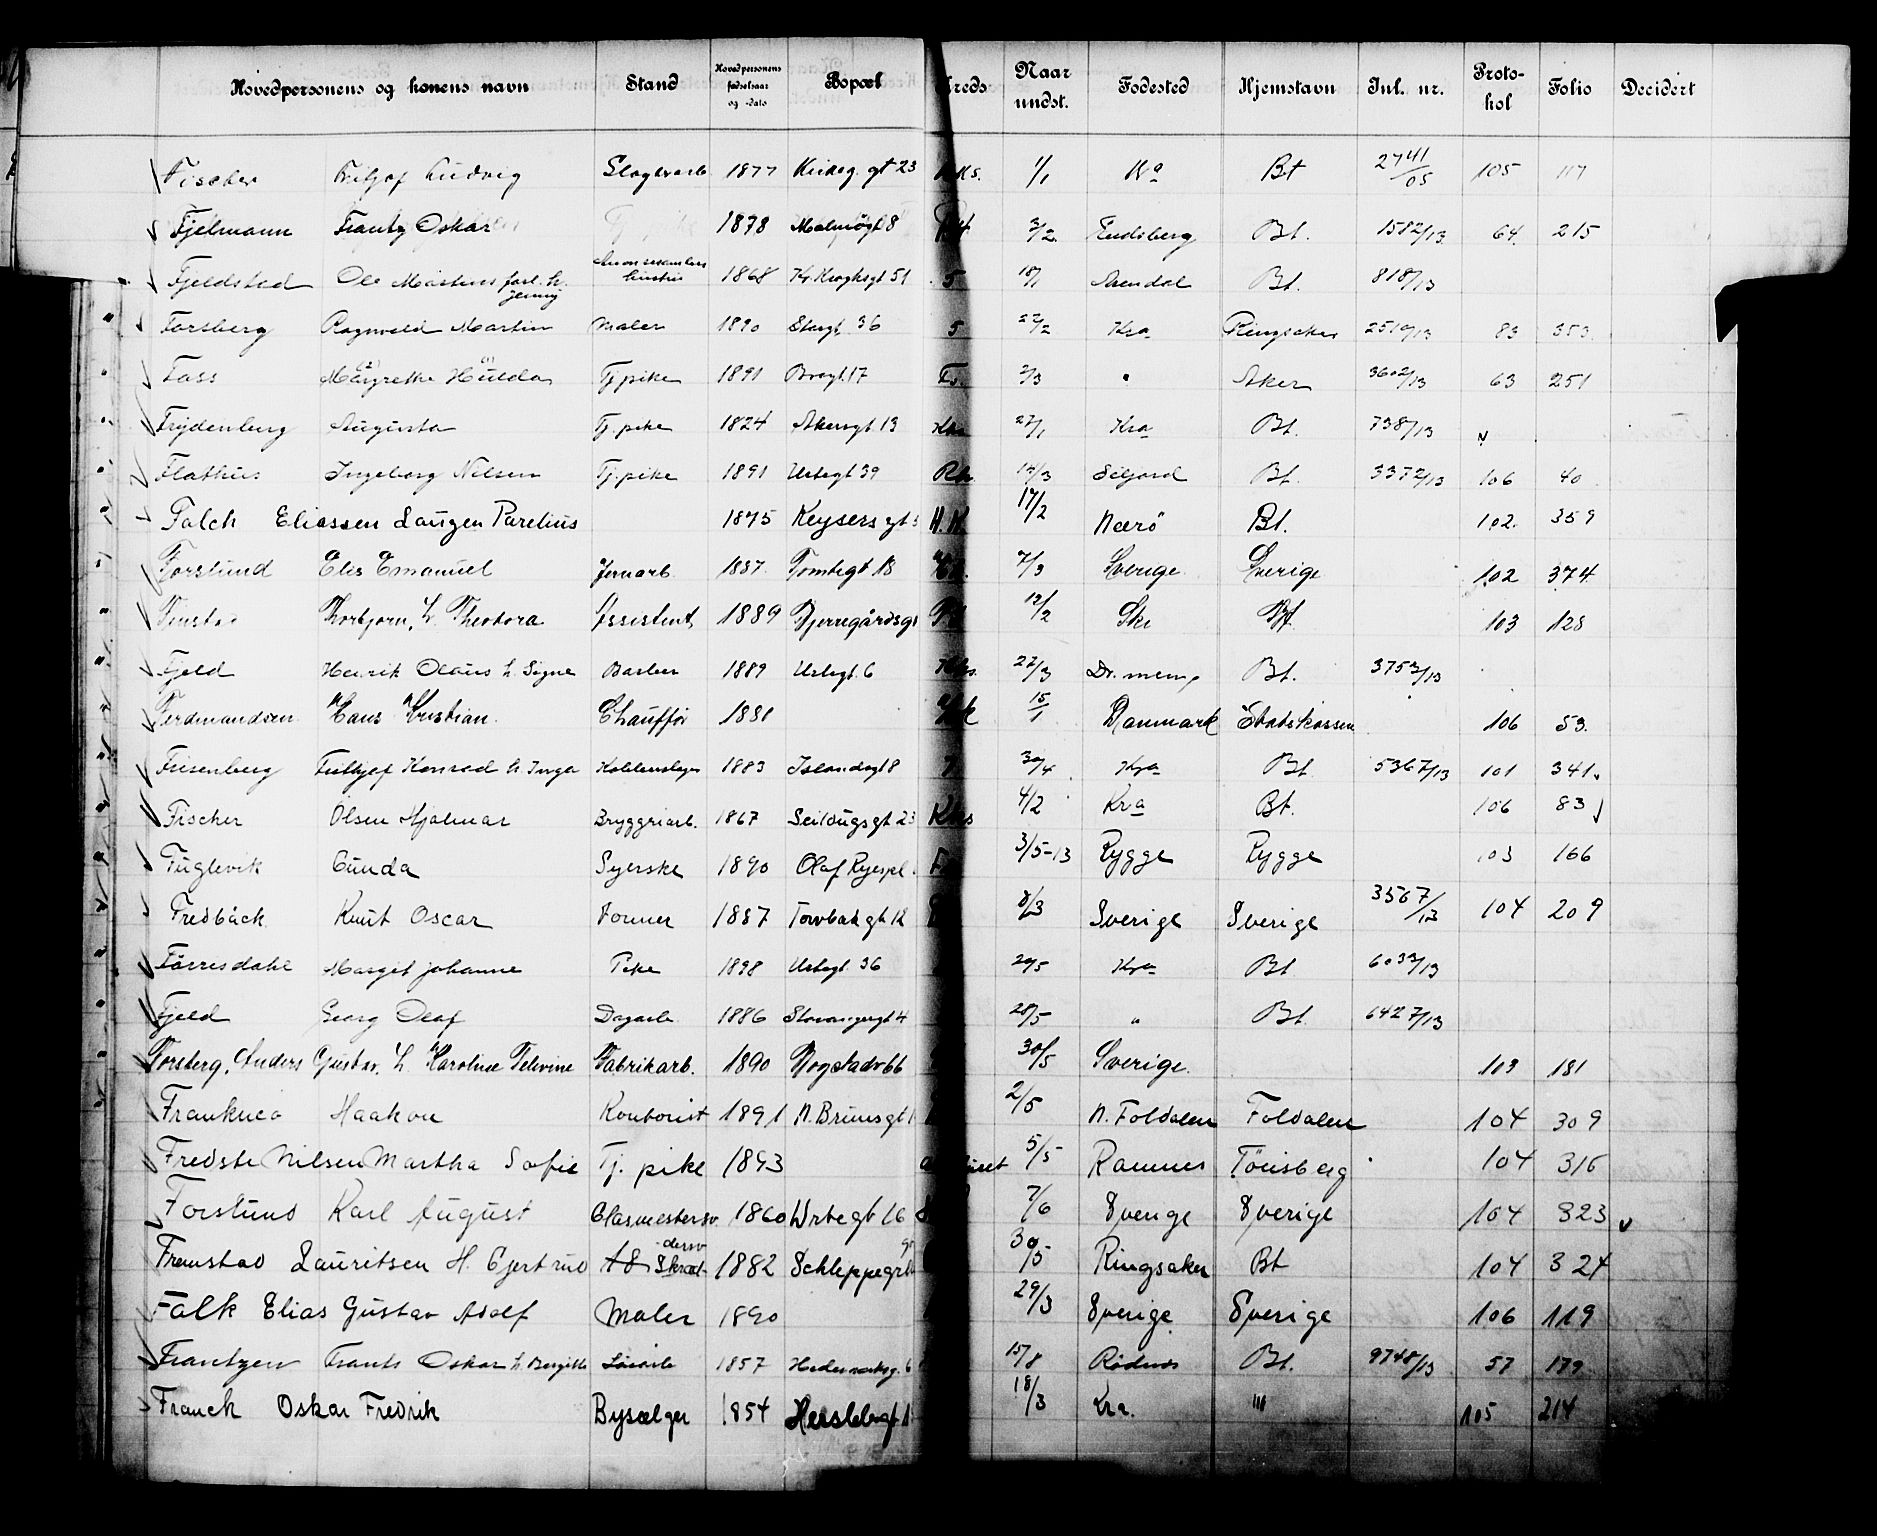 Hovedpersonens og konens navn Stand Hovedpersonens fødselsaar og -dato Bopæl Kreds Naar undst. Fødested Hjemstavn Jnl. nr. Protokol Folio Decidert
Fischer Ludvig 1877 gt 23 1/1 Kra Bt 2741/05 105 117
Fjelmann Frantz Oskar 1878 Malmögt 8 3/2 Bt. 1582/13 64 215
Fjeldstad Ole Martens forl. h. Jenny 1868 Kr. Kroghsgt 51 5 18/1 Arendal Bt. 818/13
Forsberg Ragnvald Martin Maler 1890 Storgt. 36 5 22/2 Kra Ringsaker 2510/13 83 353
Foss Margrethe Hulda Tj.pike 1891 17 Fr. 3/3 " Aker 3602/13 63 251
Frydenberg Augusta Tj.pike 1824 Akersgt 13 27/1 Kra Bt. 738/13
Flathus Ingeborg Nilsen Tj.pike 1891 Urtegt 39 12/3 Seljord Bt. 3372/13 106 40
Falch Eliassen Laugen Parelius 1875 Keysers gt H. H. 17/2 Nærö Bt. 102. 359
Forslund Emanuel Jernarb. 1887 Tomtegt 18 7/3 Sverige Sverige 102 374
Finstad Thorbjørn, h. Theodora Assistent 1889 Bjerregårdsgt 12/2 Ski Bt. 103 128
Fjeld Henrik Olaus h. Signe Barber 1889 Urtegt. 6 27/3 Dr. Bt. 3753/13
Ferdinandsen Hans Kristian Chauffør 1881 15/1 Danmark Statskassen 106 53.
Frisenberg Frithjof Konrad h. Inga 1883 Islandsgt 8 30/4 Kra Bt. 5367/13 101 341
Fischer Olsen Hjalmar Bryggeriarb. 1867 Seildugsgt 23 4/2 Kra Bt. 106 83
Fuglevik Gunda Syerske 1890 Olaf Ryespl. 3/5-13 Rygge Rygge 103 166
Fredbäck Knut Oscar Former 1887 Torvbakgt 12 8/3 Sverige Sverige 3567/13 104 209
Førresdahl Margit Johanne Pike 1898 Urtegt. 36 20/5 Kra Bt 6033/13
Fjeld Georg Olaf Dagarb. 1886 Stavangergt 4 28/5 " Bt. 6427/13
Forsberg, Anders Gustav, h. Karoline Fabrikarb. 1890 66 30/5 Sverige. 103 181
Haakon Kontorist 1891 N. Brunsgt 2/5 N. Foldalen Foldalen 104 309
Fredste Nilsen Martha Sofie Tj. pike 1893 5/5 Ramnes Tönsberg 104 316
Forslund Karl August Glasmestersv. 1860 Urtegt 16 7/6 Sverige Sverige 104 323
Fremstad Lauritsen H. Gjertrud Skræddersv 1882 Schleppegr. 30/5 Ringsaker Bt 104 324
Falk Elias Gustav Adolf Maler 1890 29/3 Sverige Sverige 106 119
Frantzen Frants Oskar h. Bergitte 1857 Hedemarksg. 6 15/8 Rödenes Bt. 9748/13 57 179
Franck Oskar Fredrik Bysælger 1854 Herslebsgt 18/3 Kra. "" 105 214